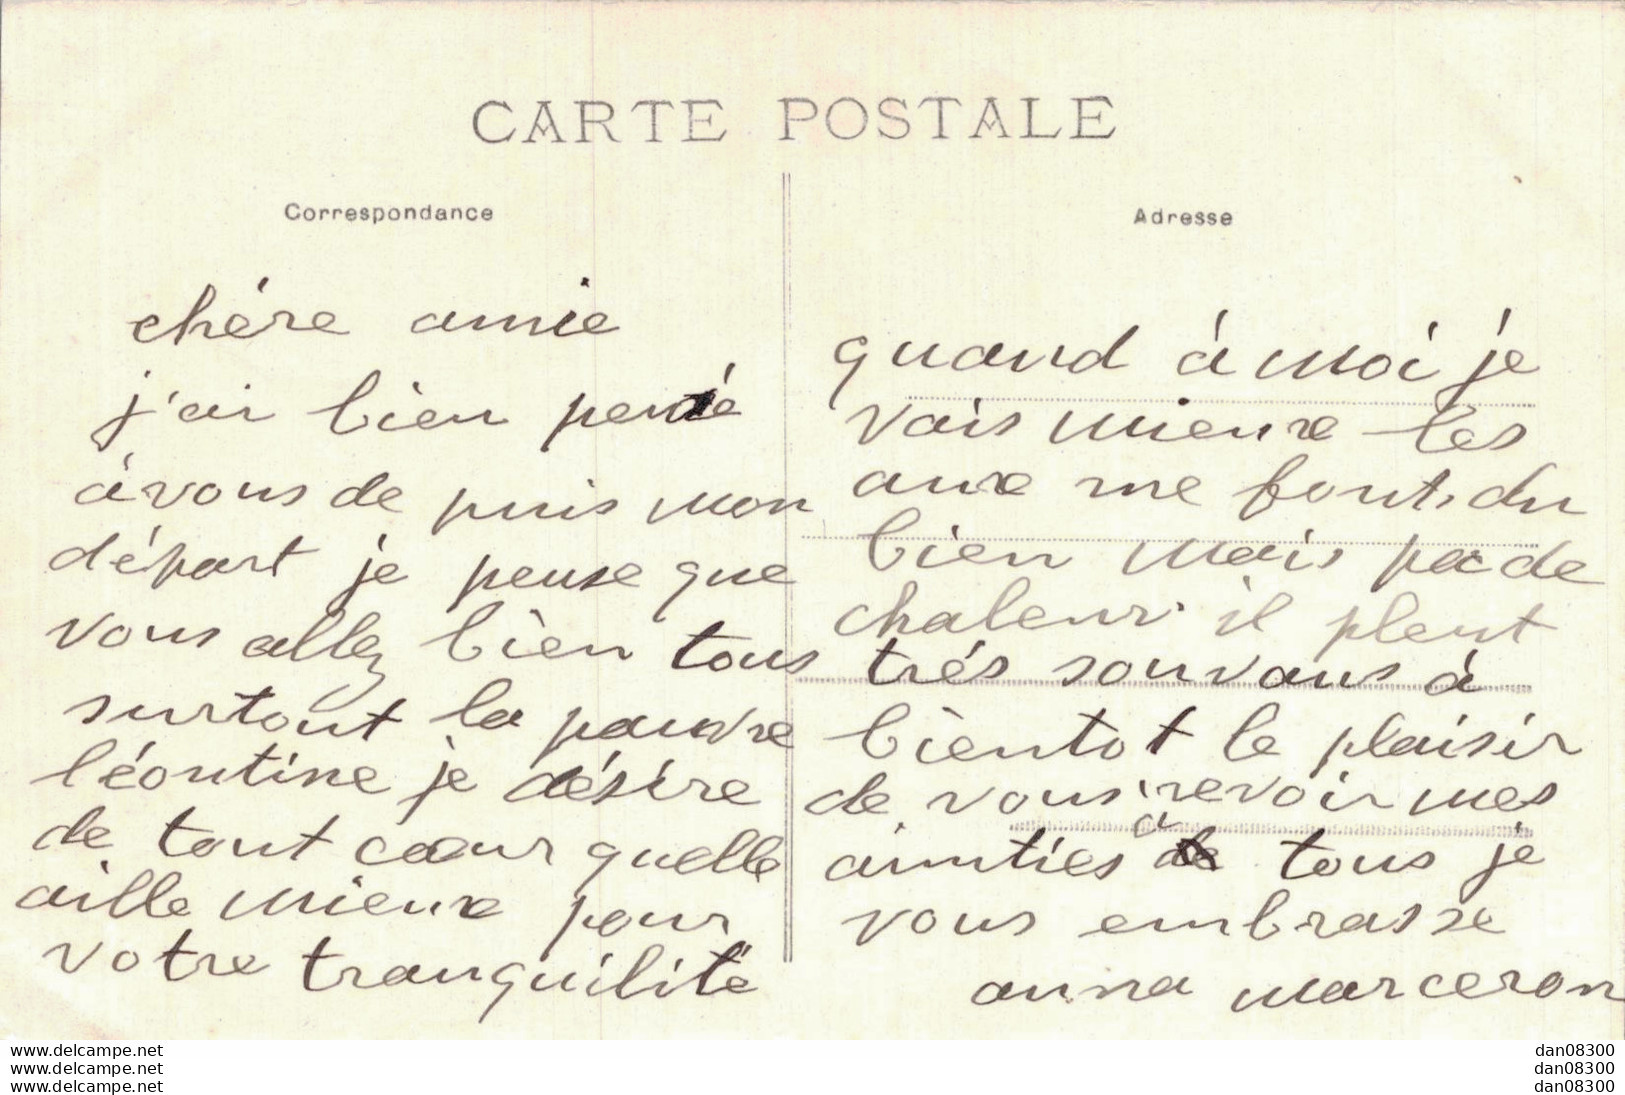 CARTE POSTALE
Correspondance
chére amie
j'ai bien pensé
à vous de puis mon
départ je pense que
vous allez bien tous
surtout la pauvre
léontine je désire
de tout cœur quelle
aille mieux pour
votre tranquilité
Adresse
quand à moi je
vais mieux les
aux me font du
bien mais pa de
chaleur il pleut
trés souvans à
bientot le plaisir
de vous revoir mes
aimties à tous je
vous embrasse
anna marceron
www.delcampe.net
www.delcampe.net
www.delcampe.net
dan08300
dan08300
dan08300